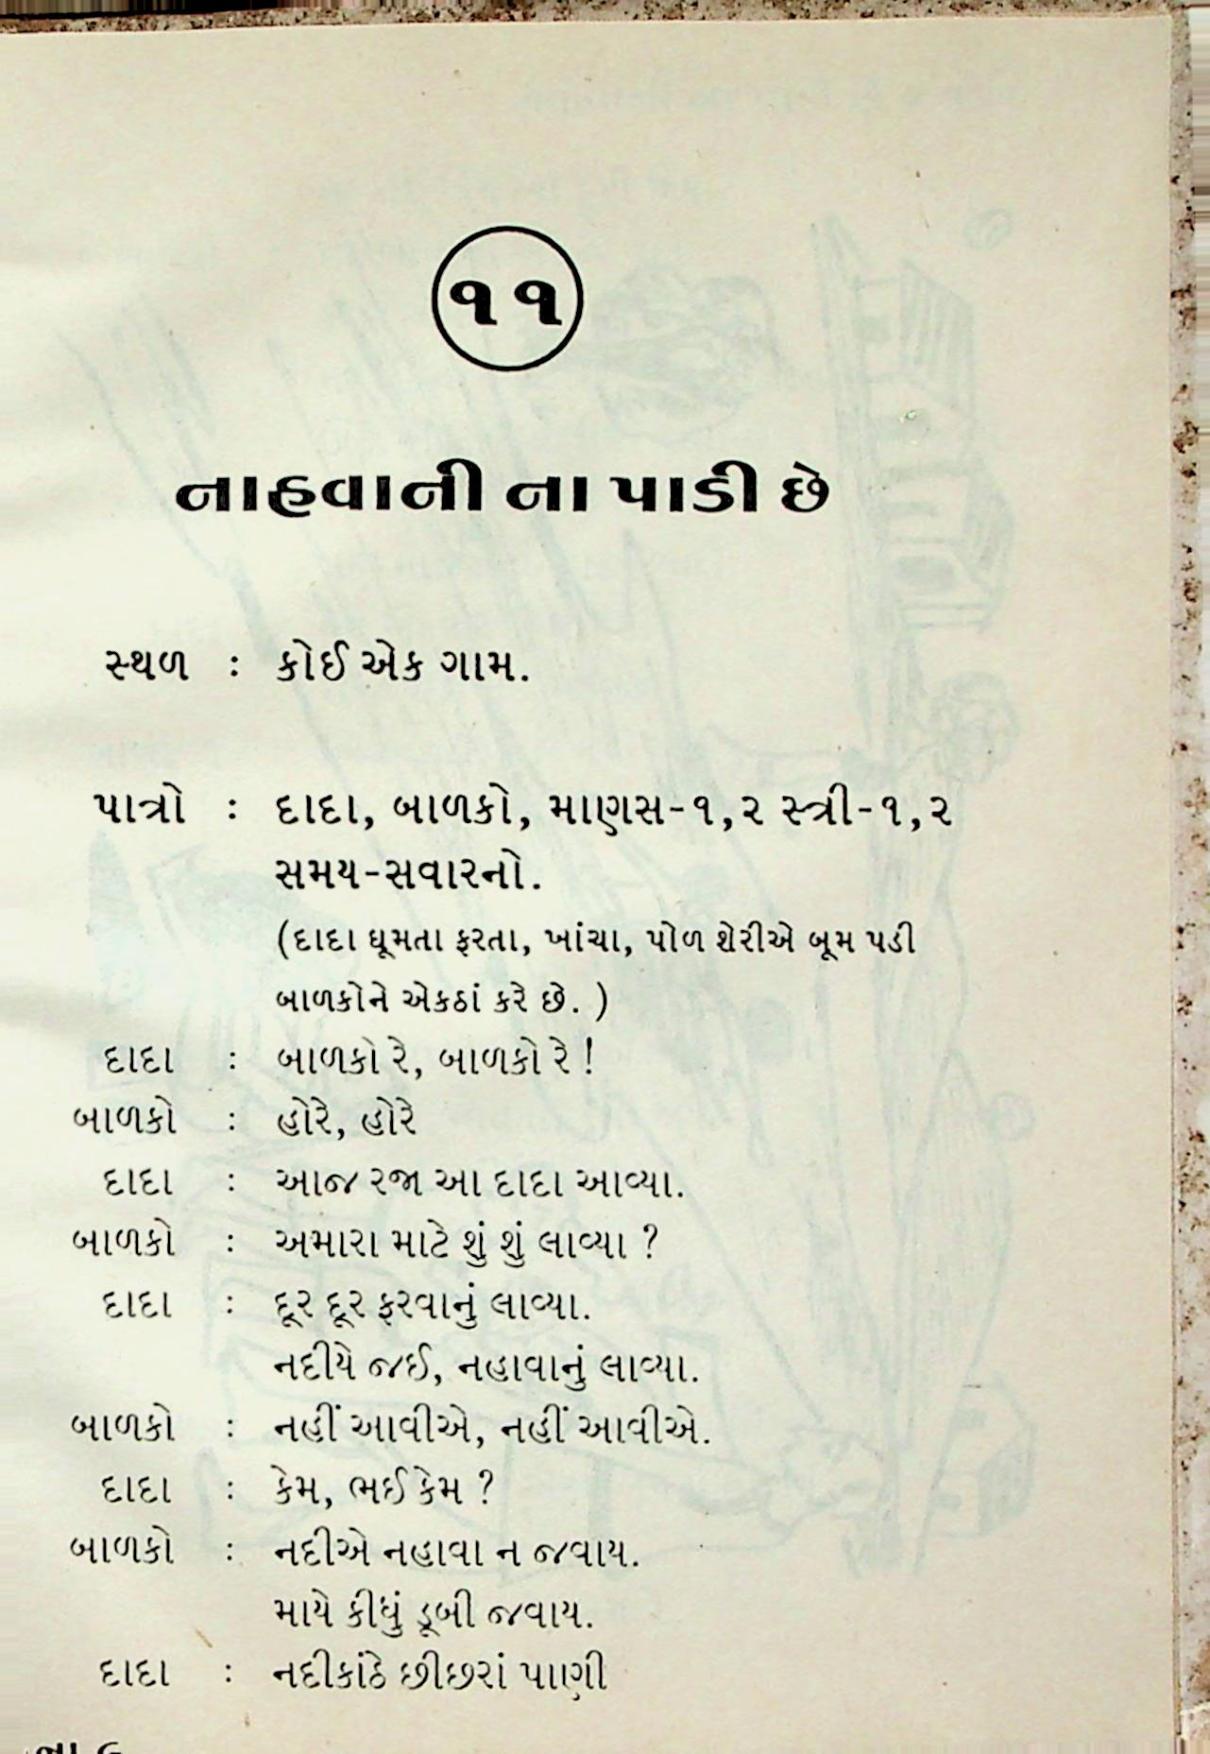 ૧૧
નાહવાની ના પાડી છે
સ્થળ : કોઈ એક ગામ.
પાત્રો : દાદા, બાળકો, માણસ-૧,૨ સ્ત્રી-૧,૨
સમય-સવારનો.
(દાદા ઘૂમતા ફરતા, ખાંચા, પોળ શેરીએ બૂમ પડી
બાળકોને એકઠાં કરે છે. )
દાદા : બાળકો રે, બાળકો રે !
બાળકો : હોરે, હોરે
દાદા : આજ રજા આ દાદા આવ્યા.
બાળકો : અમારા માટે શું શું લાવ્યા ?
દાદા : દૂર દૂર ફરવાનું લાવ્યા.
નદીયે જઈ, નહાવાનું લાવ્યા.
બાળકો : નહીં આવીએ, નહીં આવીએ.
દાદા : કેમ, ભઈ કેમ ?
બાળકો : નદીએ નહાવા ન જવાય.
માયે કીધું ડૂબી જવાય.
દાદા : નદીકાંઠે છીછરાં પાણી